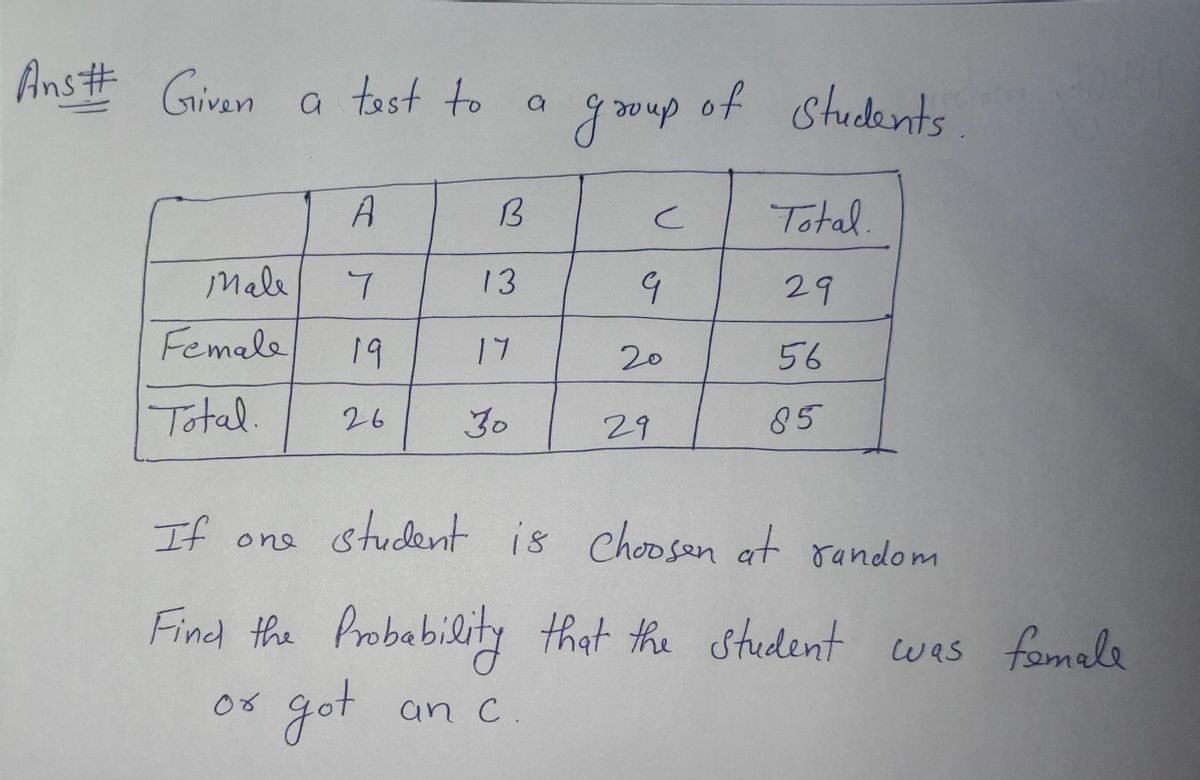 Ans# Given a test to a group of students.
A B C Total.
Male 7 13 9 29
Female 19 17 20 56
Total. 26 30 29 85
If one student is choosen at random
Find the Probability that the student was female
or got an C.